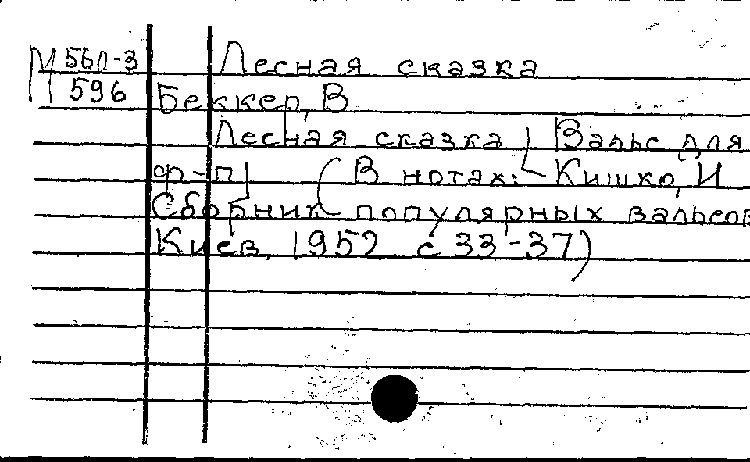 М 560-3 Лесная сказка
596 Беккер, В
Лесная сказка | Вальс для
ф-п| (В нотах: Кишко, И
Сборник популярных вальсов
Киев, 1952 с 33-37)